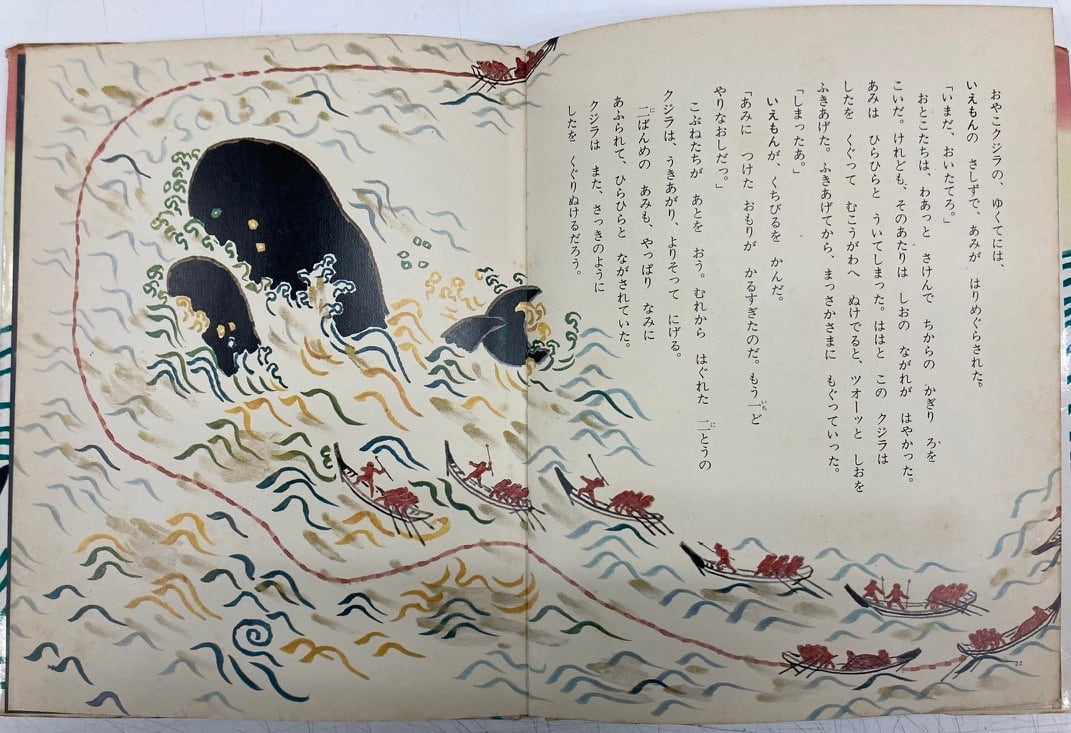 おやこクジラの、ゆくてには、
いえもんの　さしずで、あみが　はりめぐらされた。
「いまだ、おいたてろ。」
おとこたちは、わあっと　さけんで　ちからの　かぎり　ろを
こいだ。けれども、そのあたりは　しおの　ながれが　はやかった。
あみは　ひらひらと　ういてしまった。ははと　この　クジラは
したを　くぐって　むこうがわへ　ぬけでると、ツオーッと　しおを
ふきあげた。ふきあげてから、まっさかさまに　もぐっていった。
「しまったあ。」
いえもんが、くちびるを　かんだ。
「あみに　つけた　おもりが　かるすぎたのだ。もう一ど
やりなおしだっ。」
こぶねたちが　あとを　おう。むれから　はぐれた　二とうの
クジラは、うきあがり、よりそって　にげる。
二ばんめの　あみも、やっぱり　なみに
あふられて、ひらひらと　ながされていた。
クジラは　また、さっきのように
したを　くぐりぬけるだろう。
22